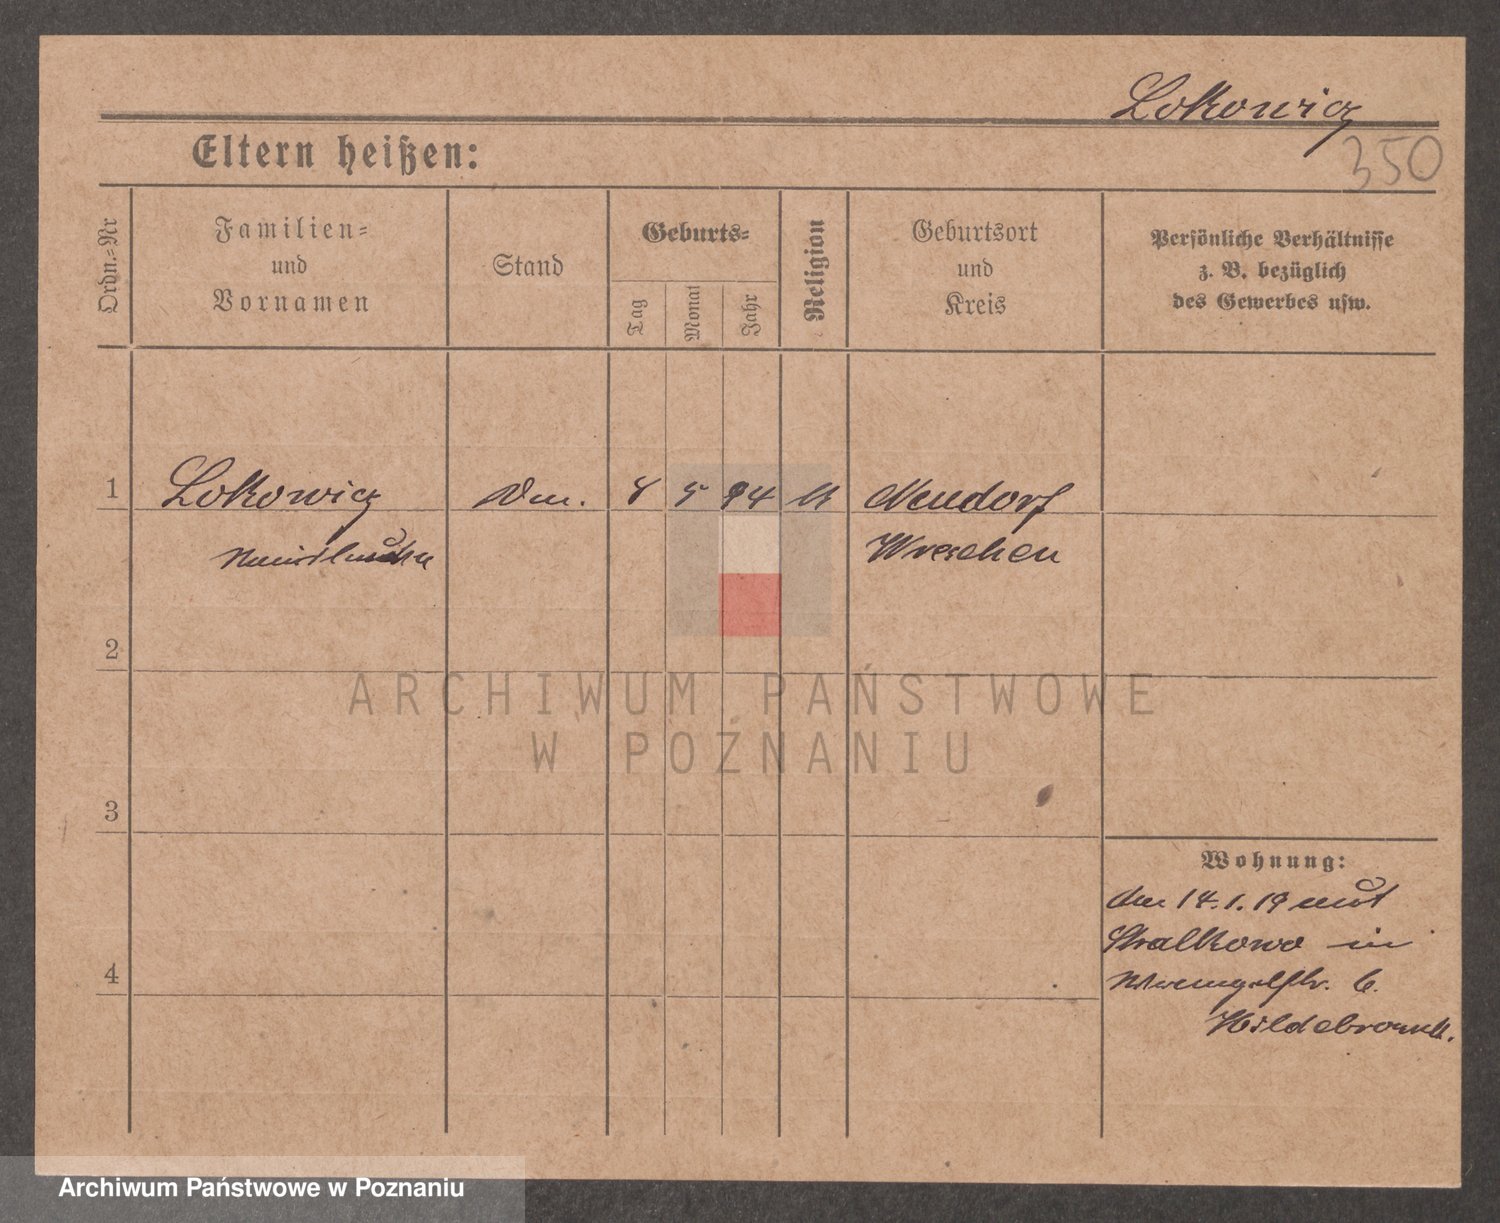 Lokowicz
350
Eltern heißen:
Ordn.=Nr
Familien=
und
Vornamen
Stand
Geburts=
Tag
Monat
Jahr
Religion
Geburtsort
und
Kreis
Persönliche Verhältnisse
z. B. bezüglich
des Gewerbes usw.
1 Lokowicz 8 5 94 Neudorf
Wreschen
2
ARCHIWUM PAŃSTWOWE
W POZNANIU
3
Wohnung:
14.1.19 aus
Stralkowo in
6.
4
Hildebrandt.
Archiwum Państwowe w Poznaniu